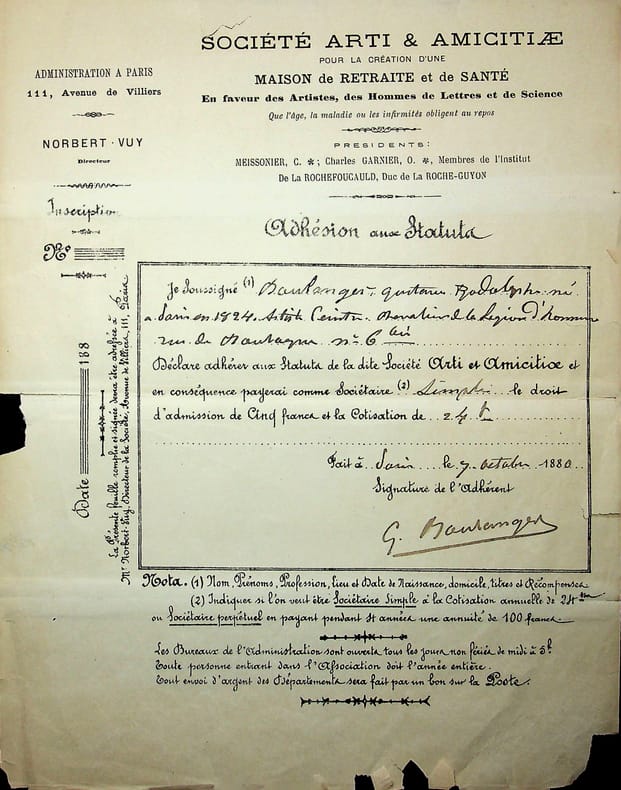 SOCIÉTÉ ARTI & AMICITIÆ
POUR LA CRÉATION D'UNE
MAISON de RETRAITE et de SANTÉ
En faveur des Artistes, des Hommes de Lettres et de Science
Que l'âge, la maladie ou les infirmités obligent au repos
PRESIDENTS:
MEISSONIER, C. ✻; Charles GARNIER, O. ✻, Membres de l'Institut
De La ROCHEFOUCAULD, Duc de La ROCHE-GUYON
ADMINISTRATION A PARIS
111, Avenue de Villiers
NORBERT-VUY
Directeur
Inscription
N°
Date 188
La Présente feuille remplie et signée devra être adressée à
Mr Norbert-Vuy, Directeur de la Société, Avenue de Villiers, 111, Paris
Adhésion aux Statuts
Je Soussigné (1) Boulanger, gustave Rodolphe né
a Paris en 1824. Artiste Peintre. Chevalier de la Legion d'honneur
rue de n° 6 bis
Déclare adhérer aux Statuts de la dite Société Arti et Amicitiæ et
en conséquence payerai comme Sociétaire (2) Simple le droit
d'admission de Cinq francs et la Cotisation de 24 f
Fait à Paris le 7 octobre 1880
Signature de l'Adhérent
G. Boulanger
Nota. (1) Nom, Prénoms, Profession, lieu et Date de Naissance, domicile, titres et Récompenses
(2) Indiquer si l'on veut être Sociétaire Simple à la Cotisation annuelle de 24
ou Sociétaire perpétuel en payant pendant années une annuité de 100 francs
Les Bureaux de l'Administration sont ouverts tous les jours non fériés de midi à 5h
Toute personne entrant dans l'Association doit l'année entière.
Tout envoi d'argent des Départements sera fait par un bon sur la Poste.